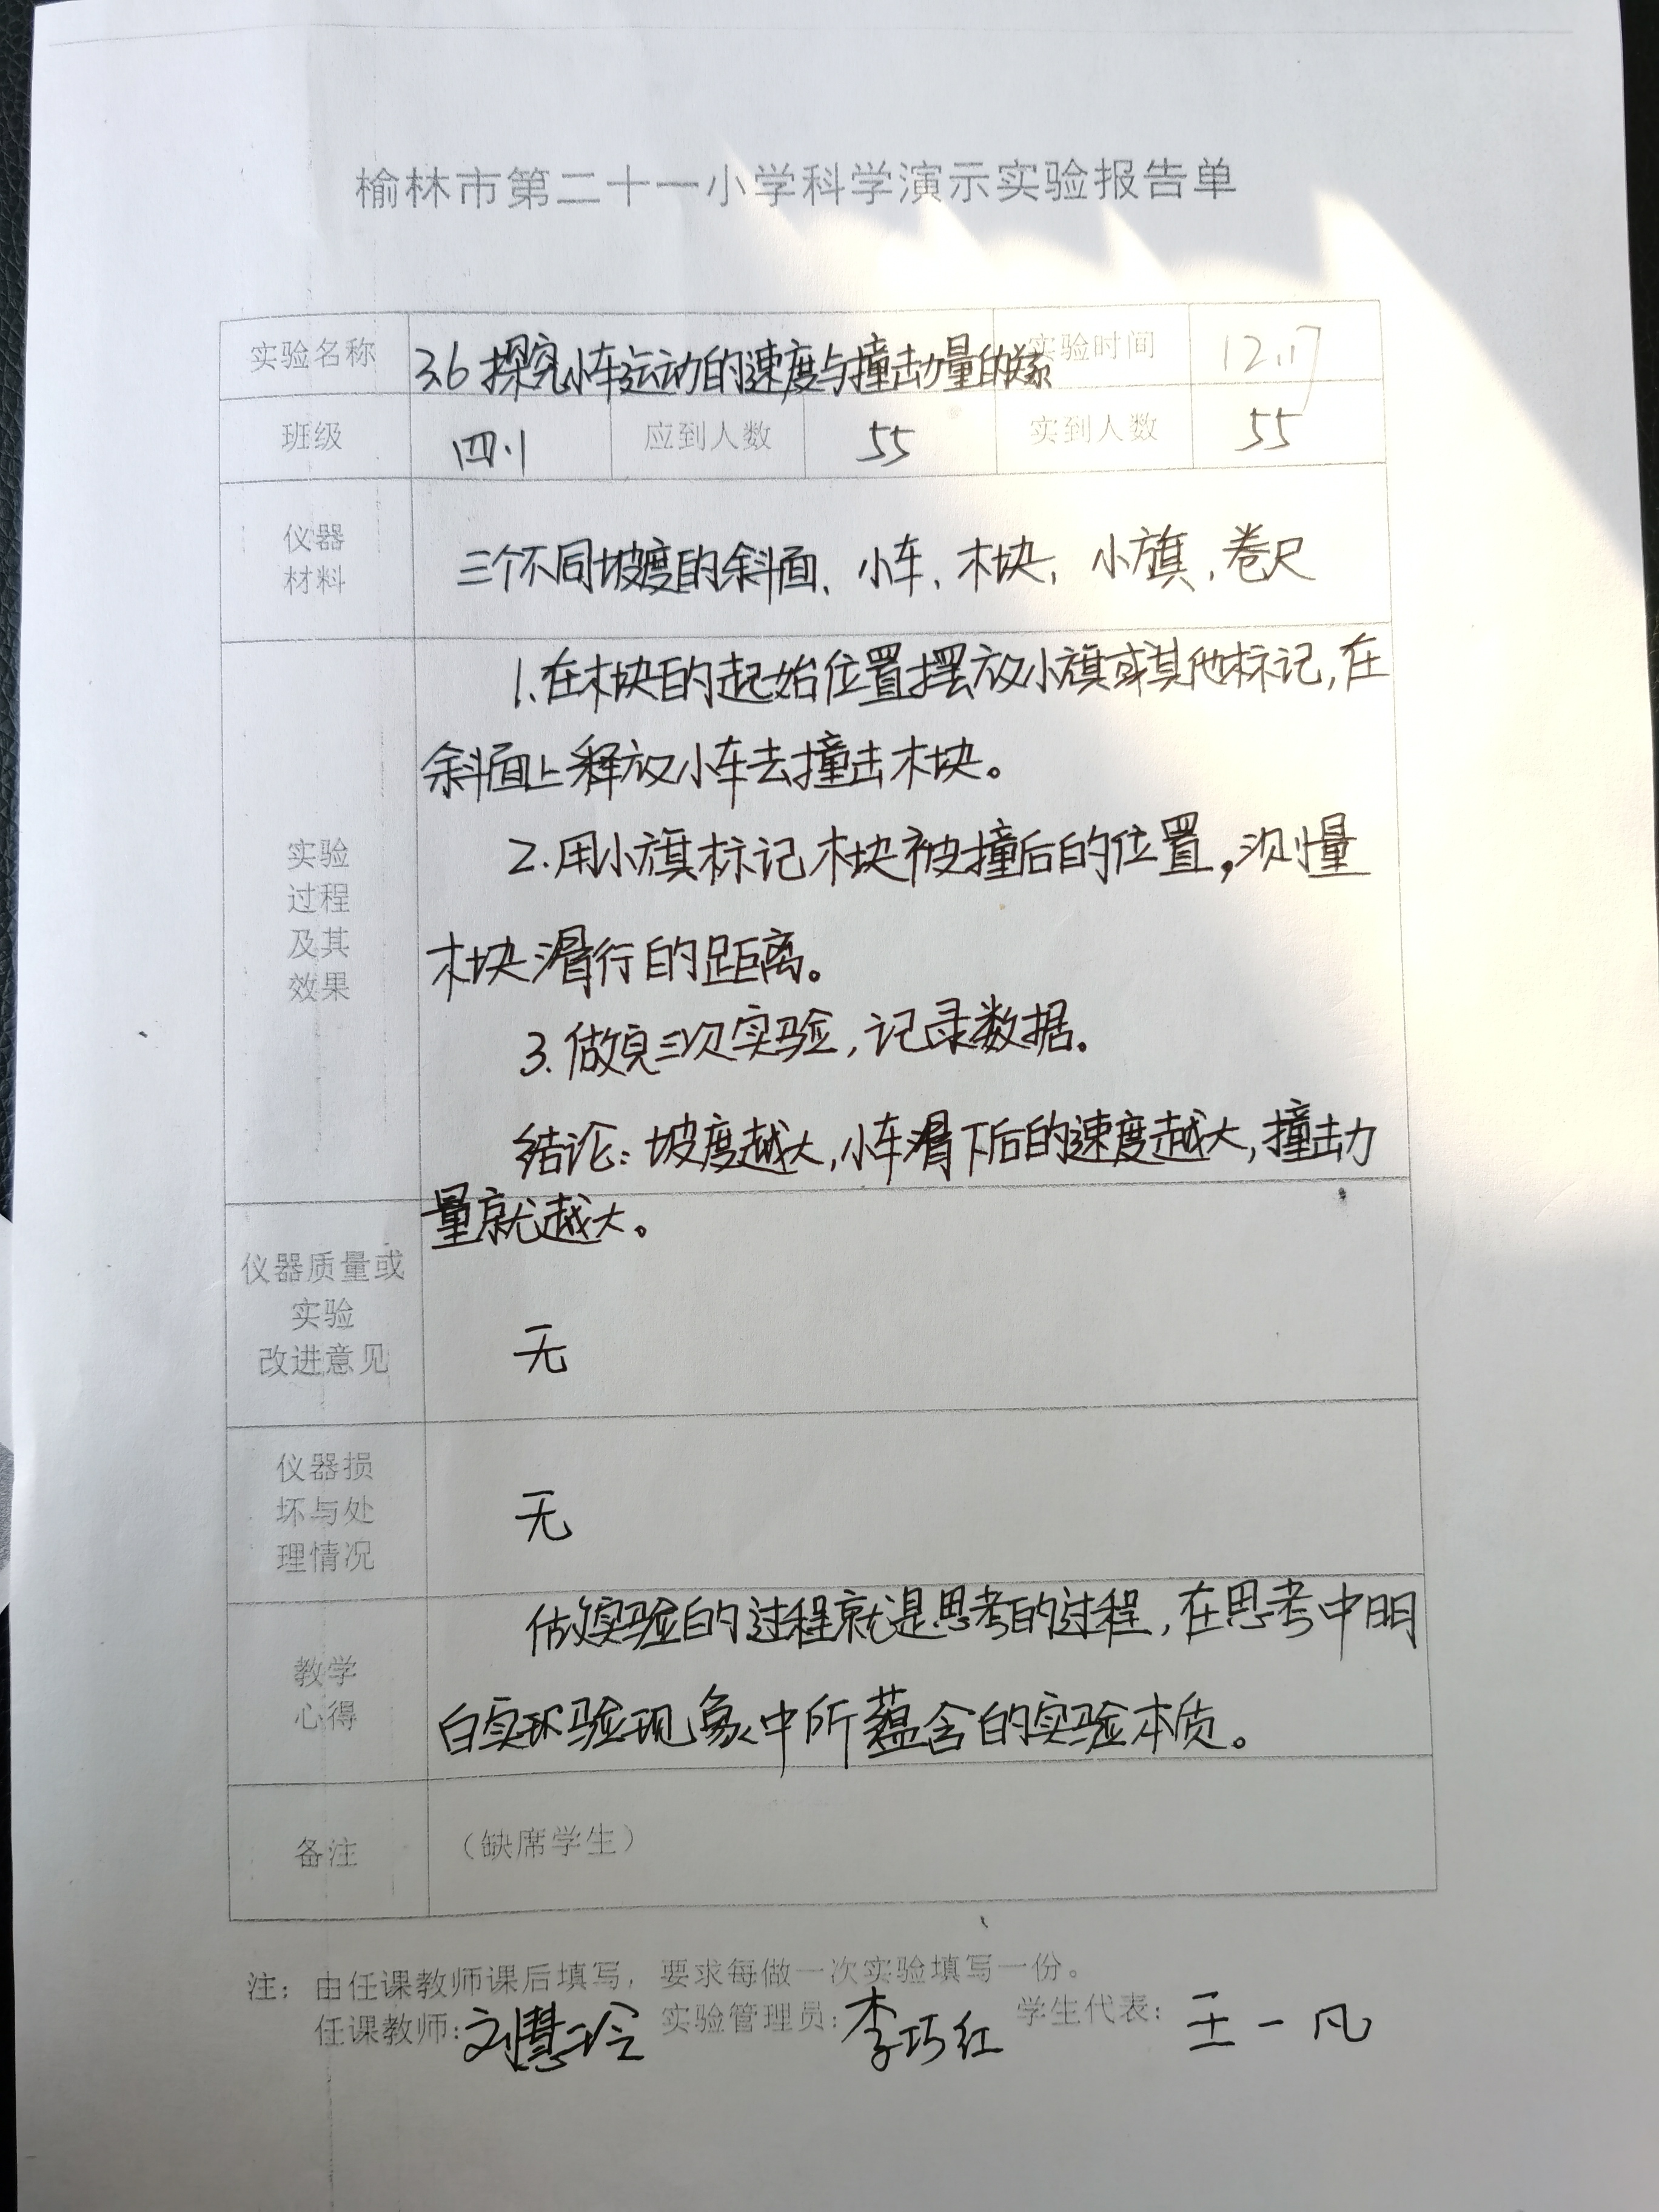 榆林市第二十一小学科学演示实验报告单
实验名称 3.6 探究小车运动的速度与撞击力量的关系 实验时间 12.17
班级 四.1 应到人数 55 实到人数 55
仪器
材料
三个不同坡度的斜面、小车、木块、小旗、卷尺
实验
过程
及其
效果
1.在木块的起始位置摆放小旗或其他标记,在
斜面上释放小车去撞击木块。
2.用小旗标记木块被撞后的位置,测量
木块滑行的距离。
3.做三次实验,记录数据。
结论:坡度越大,小车滑下后的速度越大,撞击力
量就越大。
仪器质量或
实验
改进意见
无
仪器损
坏与处
理情况
无
教学
心得
做实验的过程就是思考的过程,在思考中明
白实验现象中所蕴含的实验本质。
备注 (缺席学生)
注:由任课教师课后填写,要求每做一次实验填写一份。
任课教师:刘慧玲 实验管理员:李巧红 学生代表:王一凡